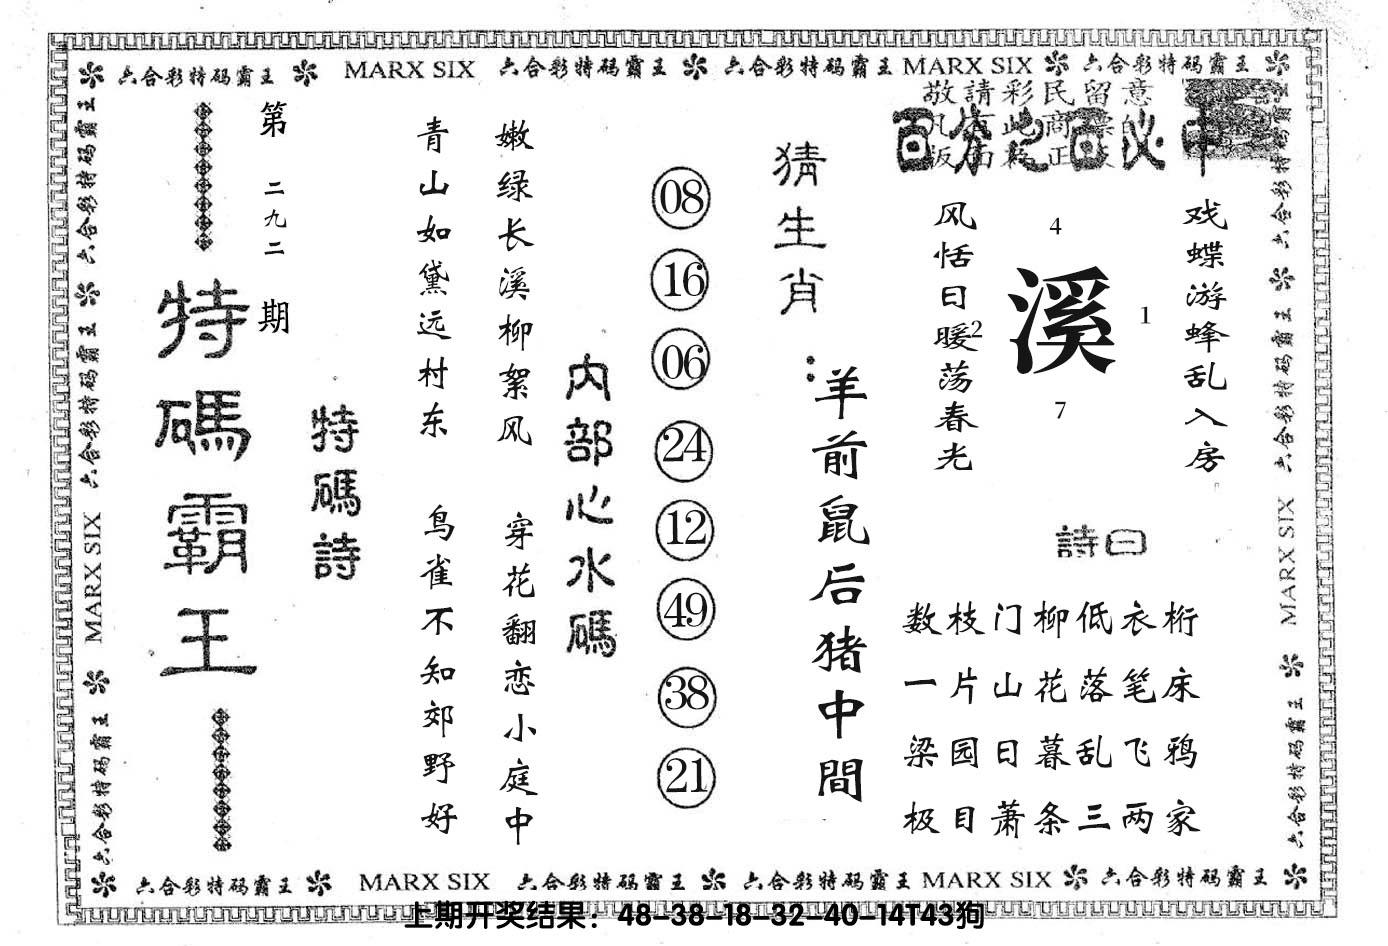 六合彩特码霸王 MARX SIX 六合彩特码霸王 六合彩特码霸王 MARX SIX 六合彩特码霸王
敬請彩民留意
百分之百必中
第二九二期
特碼霸王
特碼詩
青山如黛远村东
嫩绿长溪柳絮风
鸟雀不知郊野好
穿花翻恋小庭中
内部心水碼
08
16
06
24
12
49
38
21
猜生肖:
羊前鼠后猪中間
风恬日暖荡春光
戏蝶游蜂乱入房
4
溪
1
2
7
詩曰
数枝门柳低衣桁
一片山花落笔床
梁园日暮乱飞鸦
极目萧条三两家
六合彩特码霸王 六合彩特码霸王 MARX SIX 六合彩特码霸王
六合彩特码霸王 六合彩特码霸王 MARX SIX 六合彩特码霸王
六合彩特码霸王 MARX SIX 六合彩特码霸王 六合彩特码霸王 MARX SIX 六合彩特码霸王
上期开奖结果：48-38-18-32-40-14T43狗